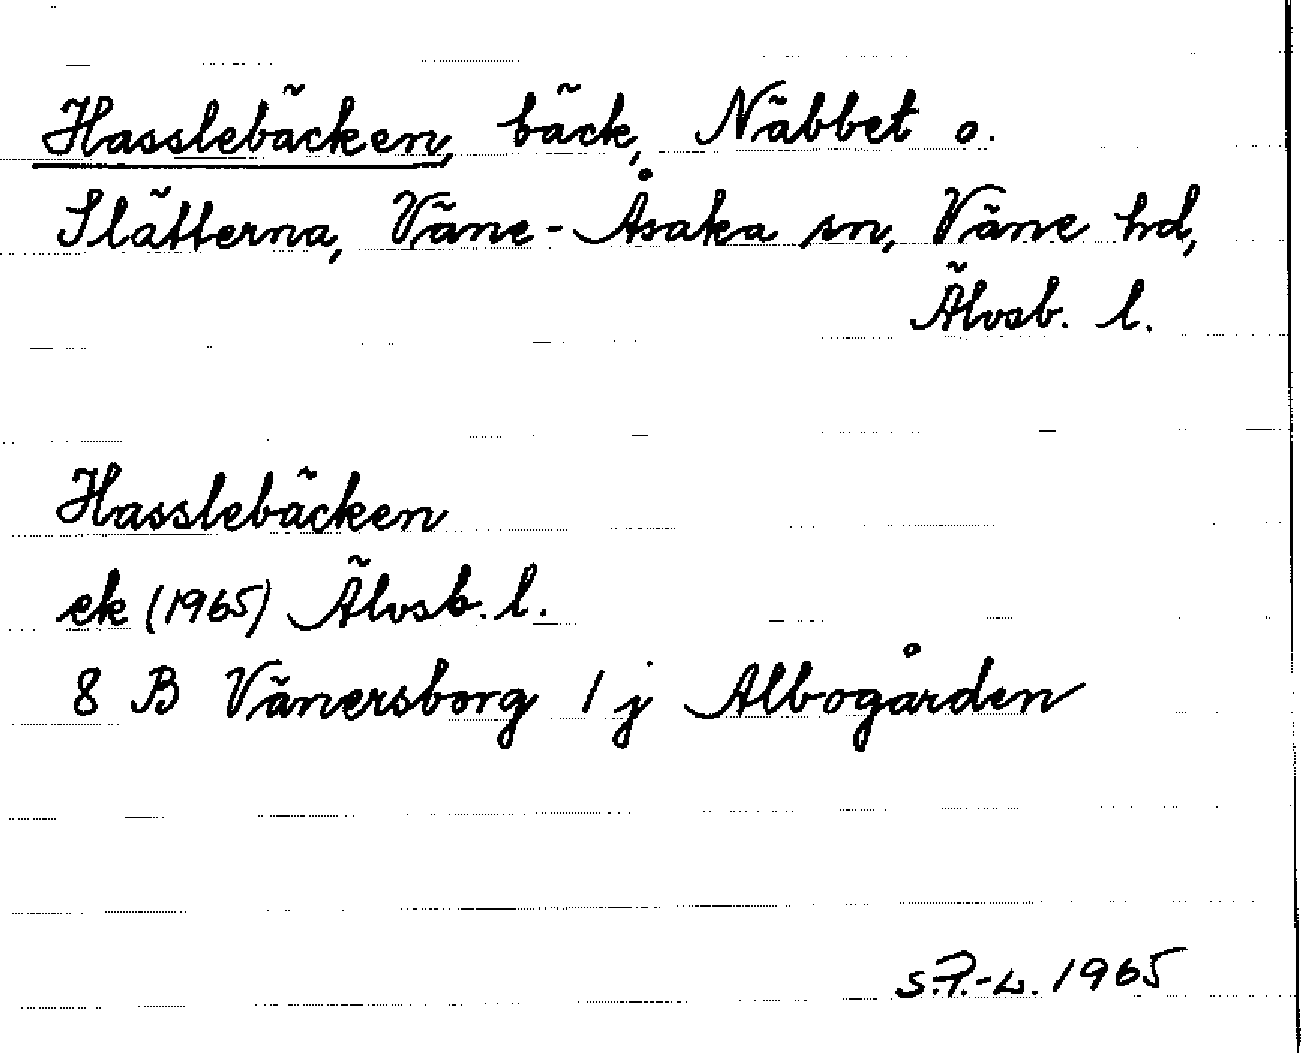 Hasslebäcken, bäck, Näbbet o.
Slätterna, Väne-Åsaka sn, Väne hd,
Älvsb. l.
Hasslebäcken
ek (1965) Älvsb. l.
8 B Vänersborg 1 j Albogården
S.F.-L. 1965